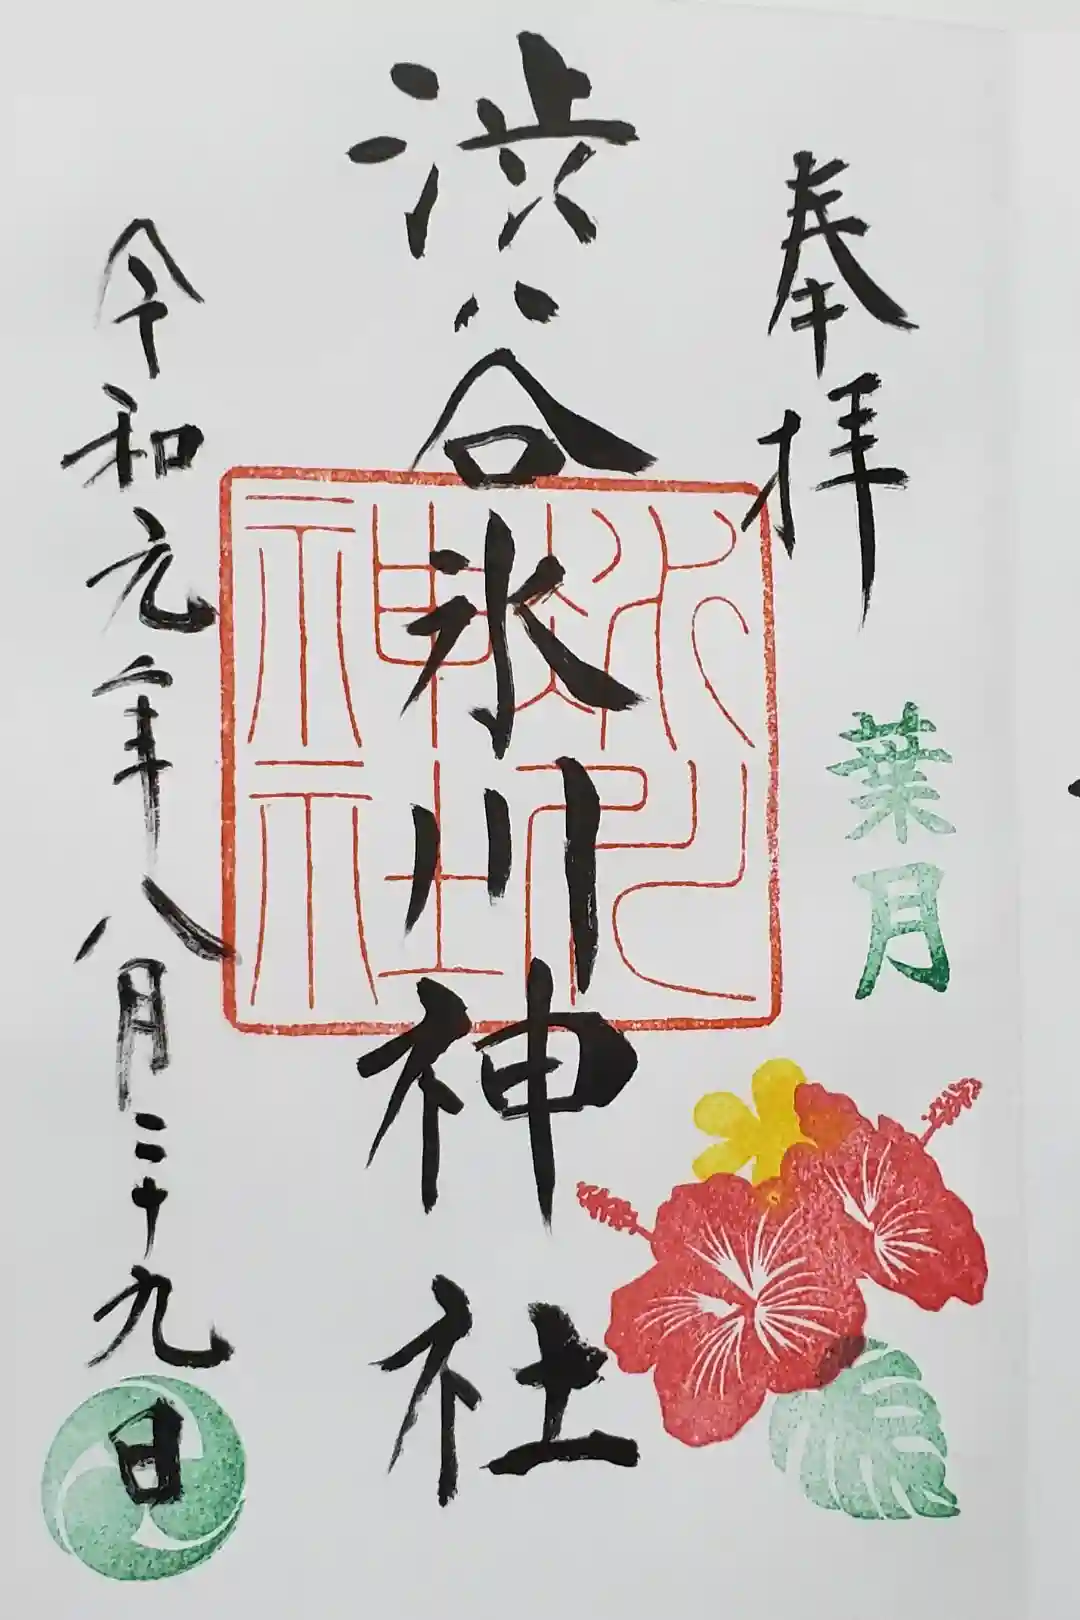 奉拝
葉月
渋谷氷川神社
氷川神社
令和元年八月二十九日